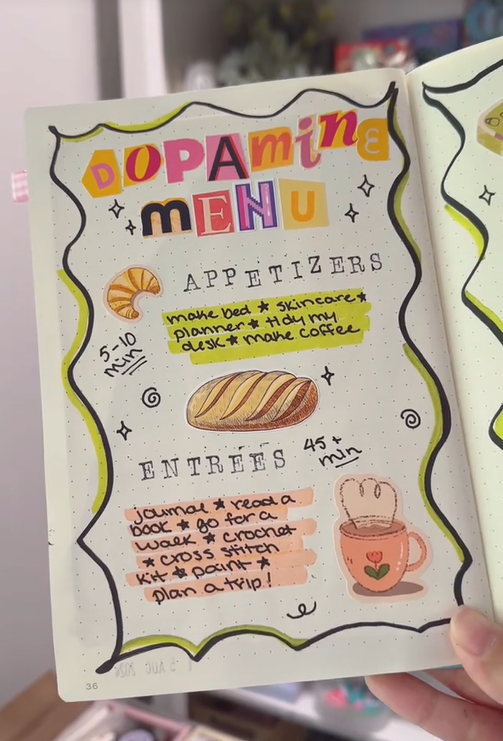 DOPAMINE
MENU
APPETIZERS
make bed ★ skincare ★
planner ★ tidy my
desk ★ make coffee
5-10
min
ENTREES
45+
min
journal ★ read a
book ★ go for a
walk ★ crochet
★ cross stitch
kit ★ paint ★
plan a trip!
36